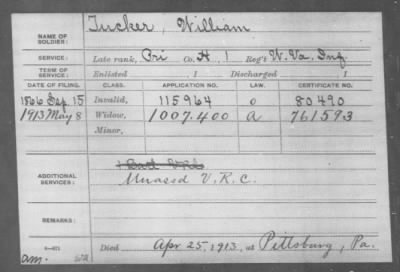 NAME OF SOLDIER: Tucker, William
SERVICE: Late rank, Pri Co. H, 1 Reg't W. Va. Inf.
TERM OF SERVICE: Enlisted 1 Discharged 1
DATE OF FILING. CLASS. APPLICATION NO. LAW. CERTIFICATE NO.
1866 Sep. 15 Invalid, 115964 o 80490
1913 May 8 Widow, 1007.400 a 761593
Minor,
ADDITIONAL SERVICES:
Unassd V.R.C.
REMARKS:
Died Apr 25, 1913, at Pittsburg, Pa.